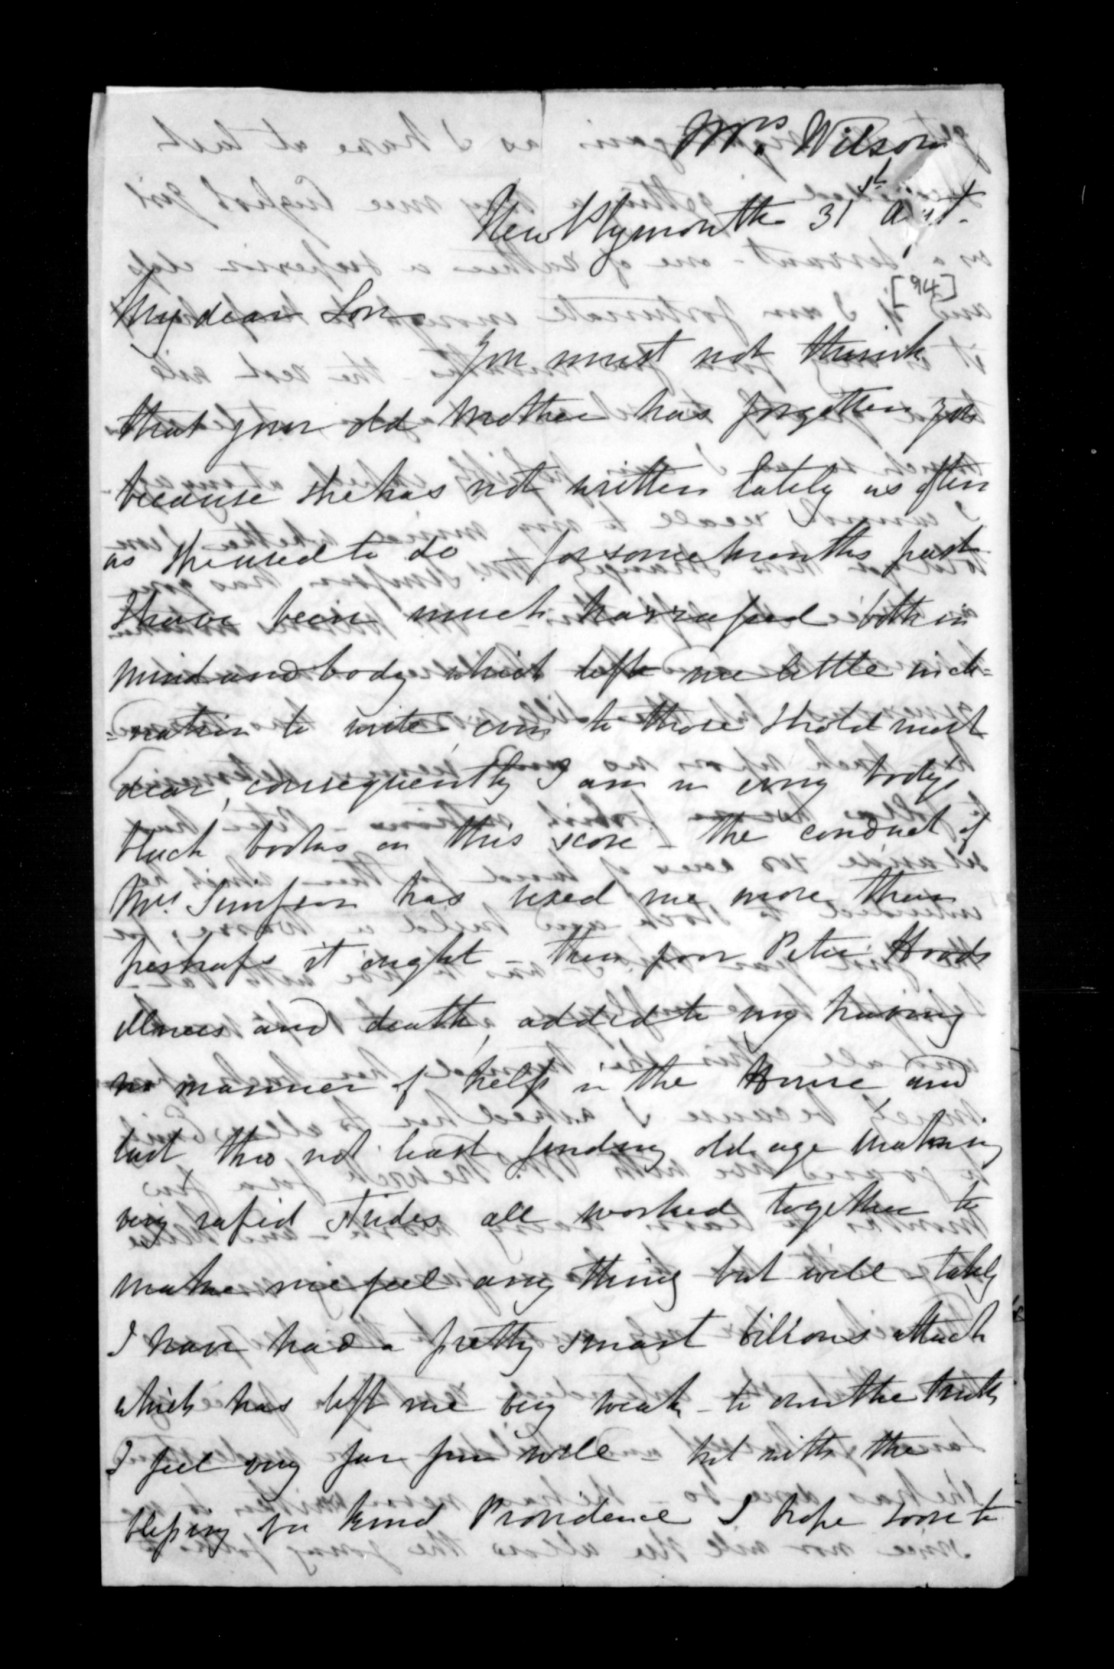 Mrs. Wilson
New Plymouth 31st Augt.
[94]
My dear Son
You must not think
that your old Mother has forgotten you
because she has not written lately as often
as she used to do - for some months past
I have been much harrassed both in
mind and body which left me little incli-
-nation to write even to those I hold most
dear, consequently I am in every bodys
black books on this score - the conduct of
Mrs. Simpson has vexed me more than
perhaps it ought - then poor Peter Hoods
illness and death, added to my having
no manner of help in the House, and
last, tho not least finding old age making
very rapid strides all worked together to
make me feel any thing but well - lately
I have had a pretty smart bilious attack
which has left me very weak - to own the truth
I feel very far from well but with the
blessing of a kind Providence I hope soon to